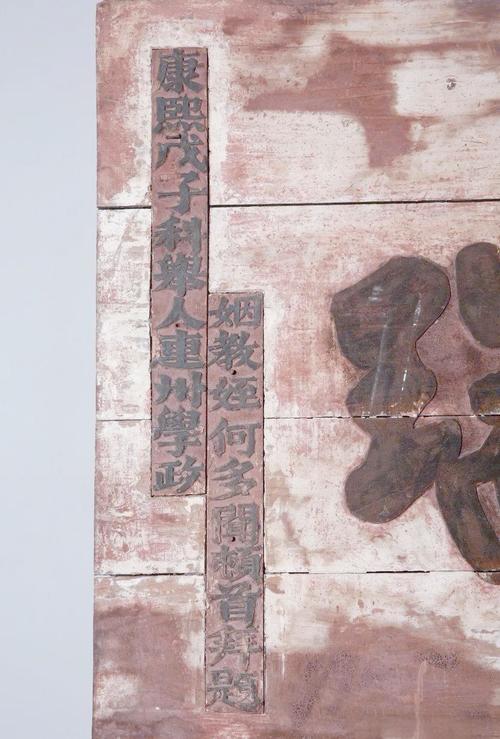 康熙戊子科舉人連州學政
姻教姪何多聞頓首拜題